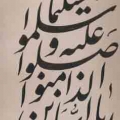 يا ايها
الذين امنوا
صلوا
عليه وسلموا
تسليما